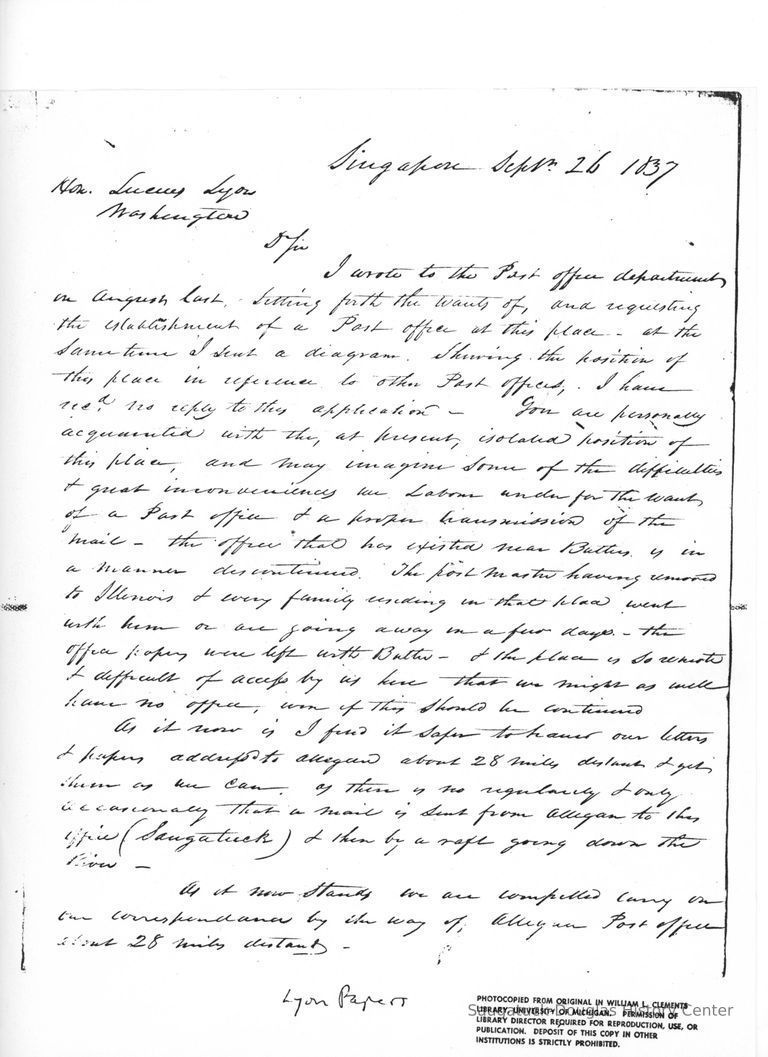 Singapore Sept. 26 1837
Hon. Lucius Lyon
Washington
D Sir
I wrote to the Post office department
in August last. Setting forth the wants of, and requesting
the establishment of a Post office at this place - at the
same time I sent a diagram. Shewing the position of
this place in reference to other Post offices, . I have
recd no reply to this application - You are personally
acquainted with the, at present, isolated position of
this place, and may imagine some of the difficulties
& great inconveniences we Labour under for the want
of a Post office & a proper transmission of the
mail - the office that has existed near Butlers is in
a manner discontinued. The post master having removed
to Illinois & every family residing in that place went
with him or are going away in a few days - the
office papers were left with Butler - & the place is so remote
& difficult of access by us here that we might as well
have no office, even if this should be continued
As it now is I find it safer to have our letters
& papers addressd to allegan about 28 miles distant & get
them as we can, as there is no regularity & only
occasionally that a mail is sent from Allegan to this
office (Saugatuck) & then by a raft going down the
River -
As it now stands we are compelled carry on
our correspondence by the way of, Allegan Post office
about 28 miles distant -
Lyon Papers
PHOTOCOPIED FROM ORIGINAL IN WILLIAM L. CLEMENTS
LIBRARY, UNIVERSITY OF MICHIGAN. PERMISSION OF
LIBRARY DIRECTOR REQUIRED FOR REPRODUCTION, USE, OR
PUBLICATION. DEPOSIT OF THIS COPY IN OTHER
INSTITUTIONS IS STRICTLY PROHIBITED.
Saugatuck-Douglas History Center